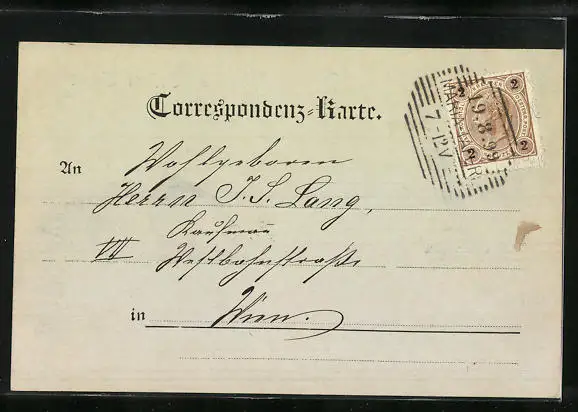 Correspondenz-Karte.
An Wohlgeboren
Herrn J. S. Lang,
Kaufmann
VII Westbahnstraße
in Wien.
2 2
2 2
19.8.99
7-12V